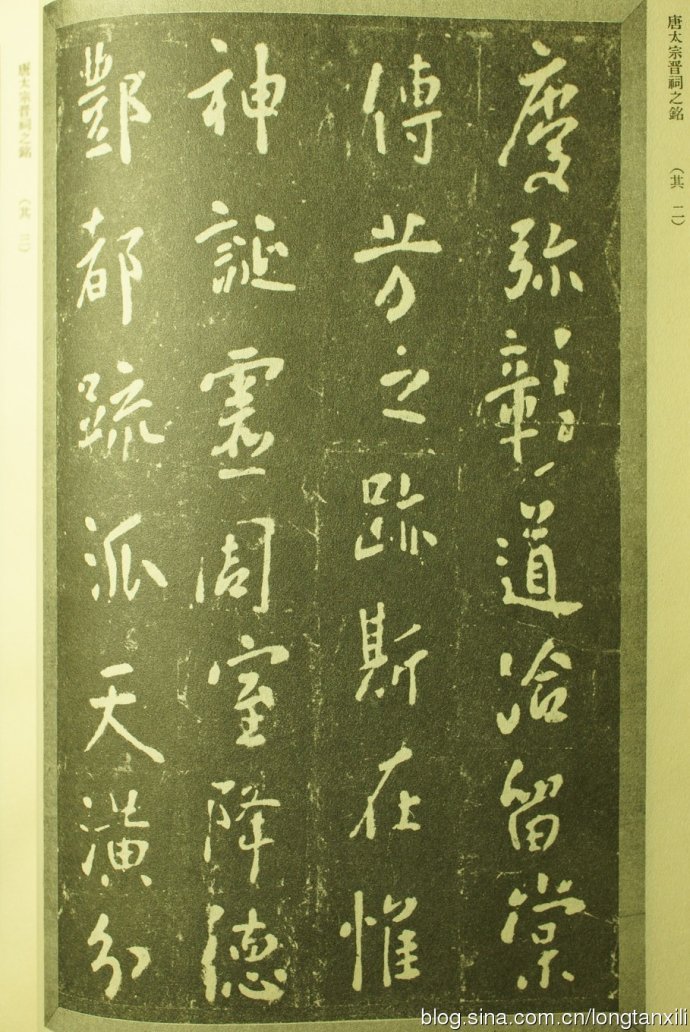 唐太宗晋祠之銘 （其 二）
慶弥彰道洽留棠
傳芳之跡斯在惟
神誕靈周室降德
酆都疏派天潢分
唐太宗晋祠之銘 （其 三）
blog.sina.com.cn/longtanxili